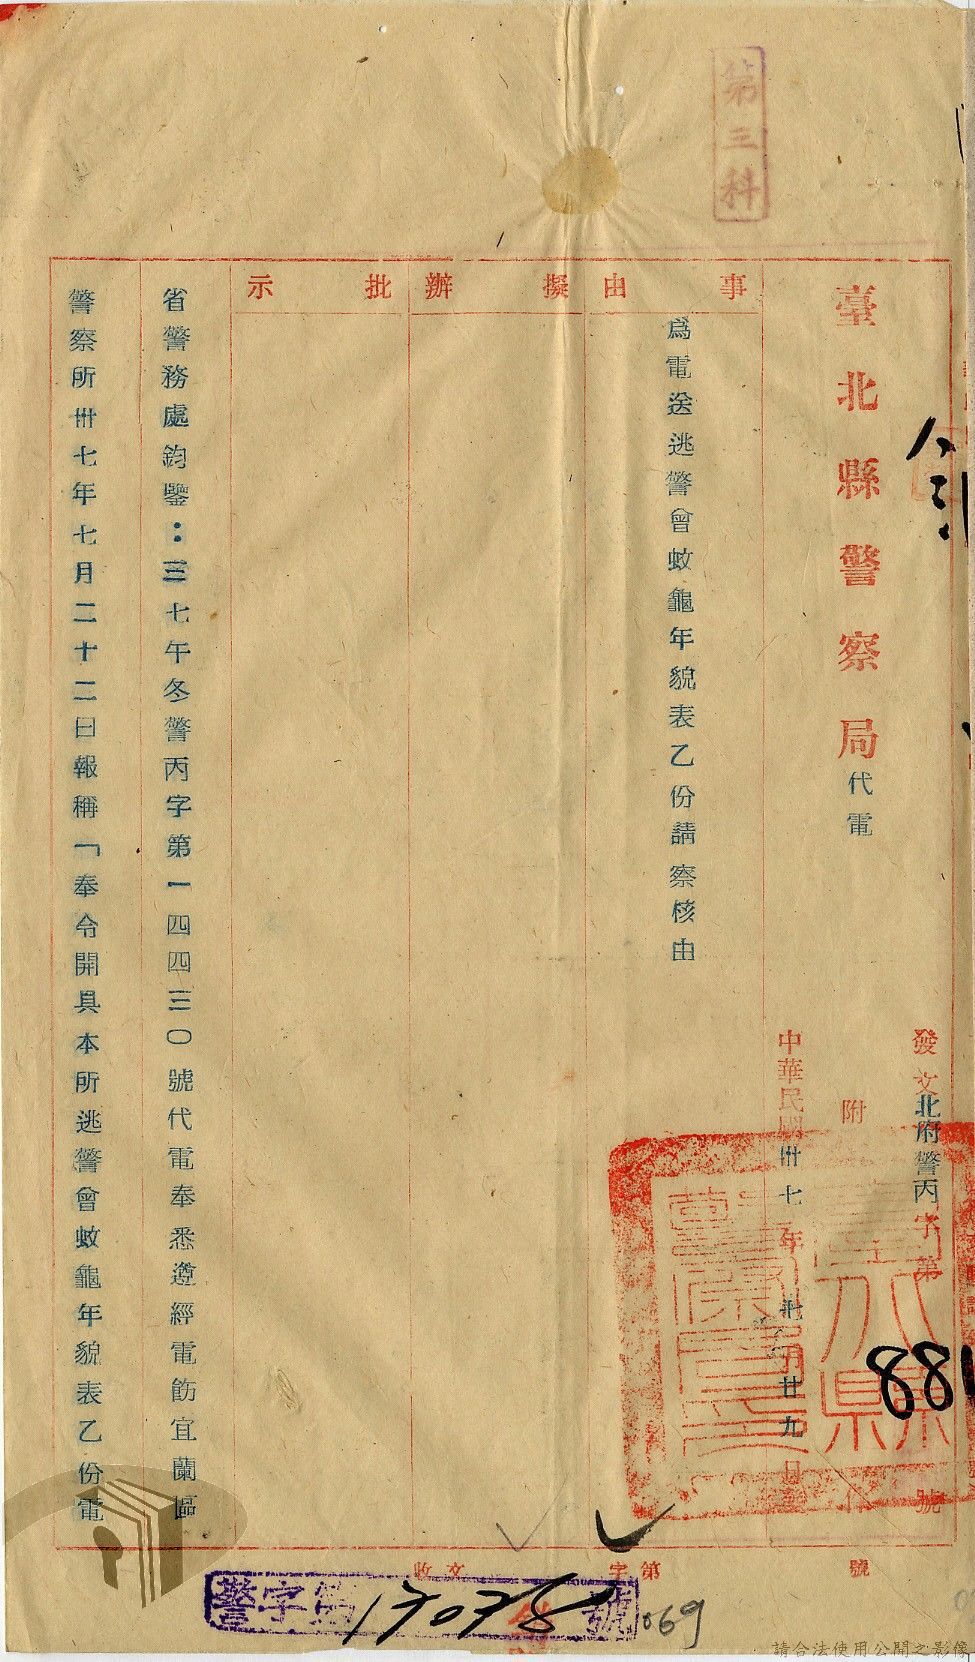 第三科
臺北縣警察局代電
發文北府警丙字第
881
號
附
中華民國卅七年
月廿九日發
事由
擬辦
批示
為電送逃警曾蚊龜年貌表乙份請察核由
省警務處鈞鑒：三七午冬警丙字第一四四三〇號代電奉悉遵經電飭宜蘭區
警察所卅七年七月二十二日報稱「奉令開具本所逃警曾蚊龜年貌表乙份電
收文
字第
號
警字第17078號
069
請合法使用公開之影像